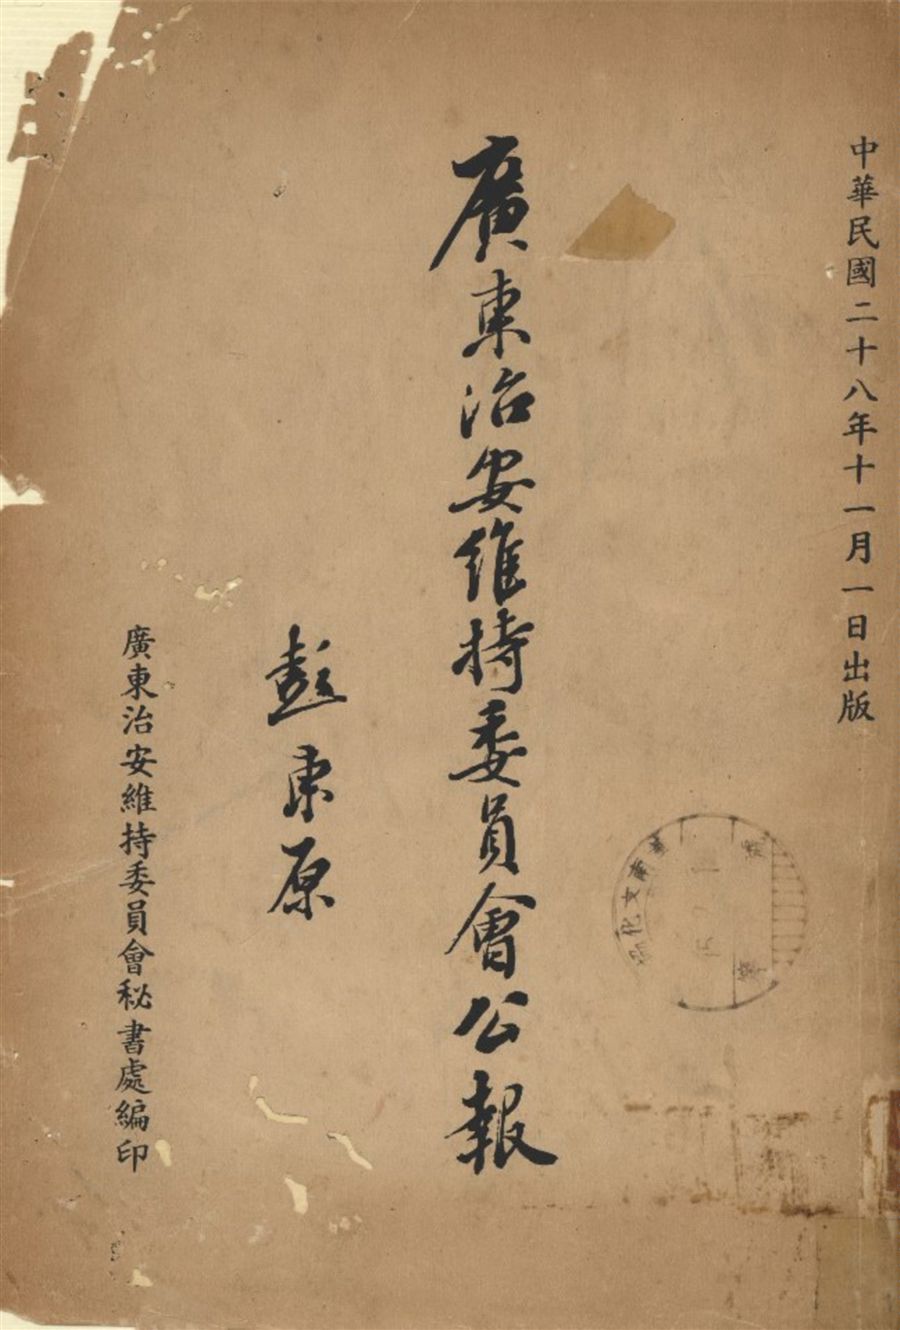 中華民國二十八年十一月一日出版
廣東治安維持委員會公報
彭東原
廣東治安維持委員會秘書處編印